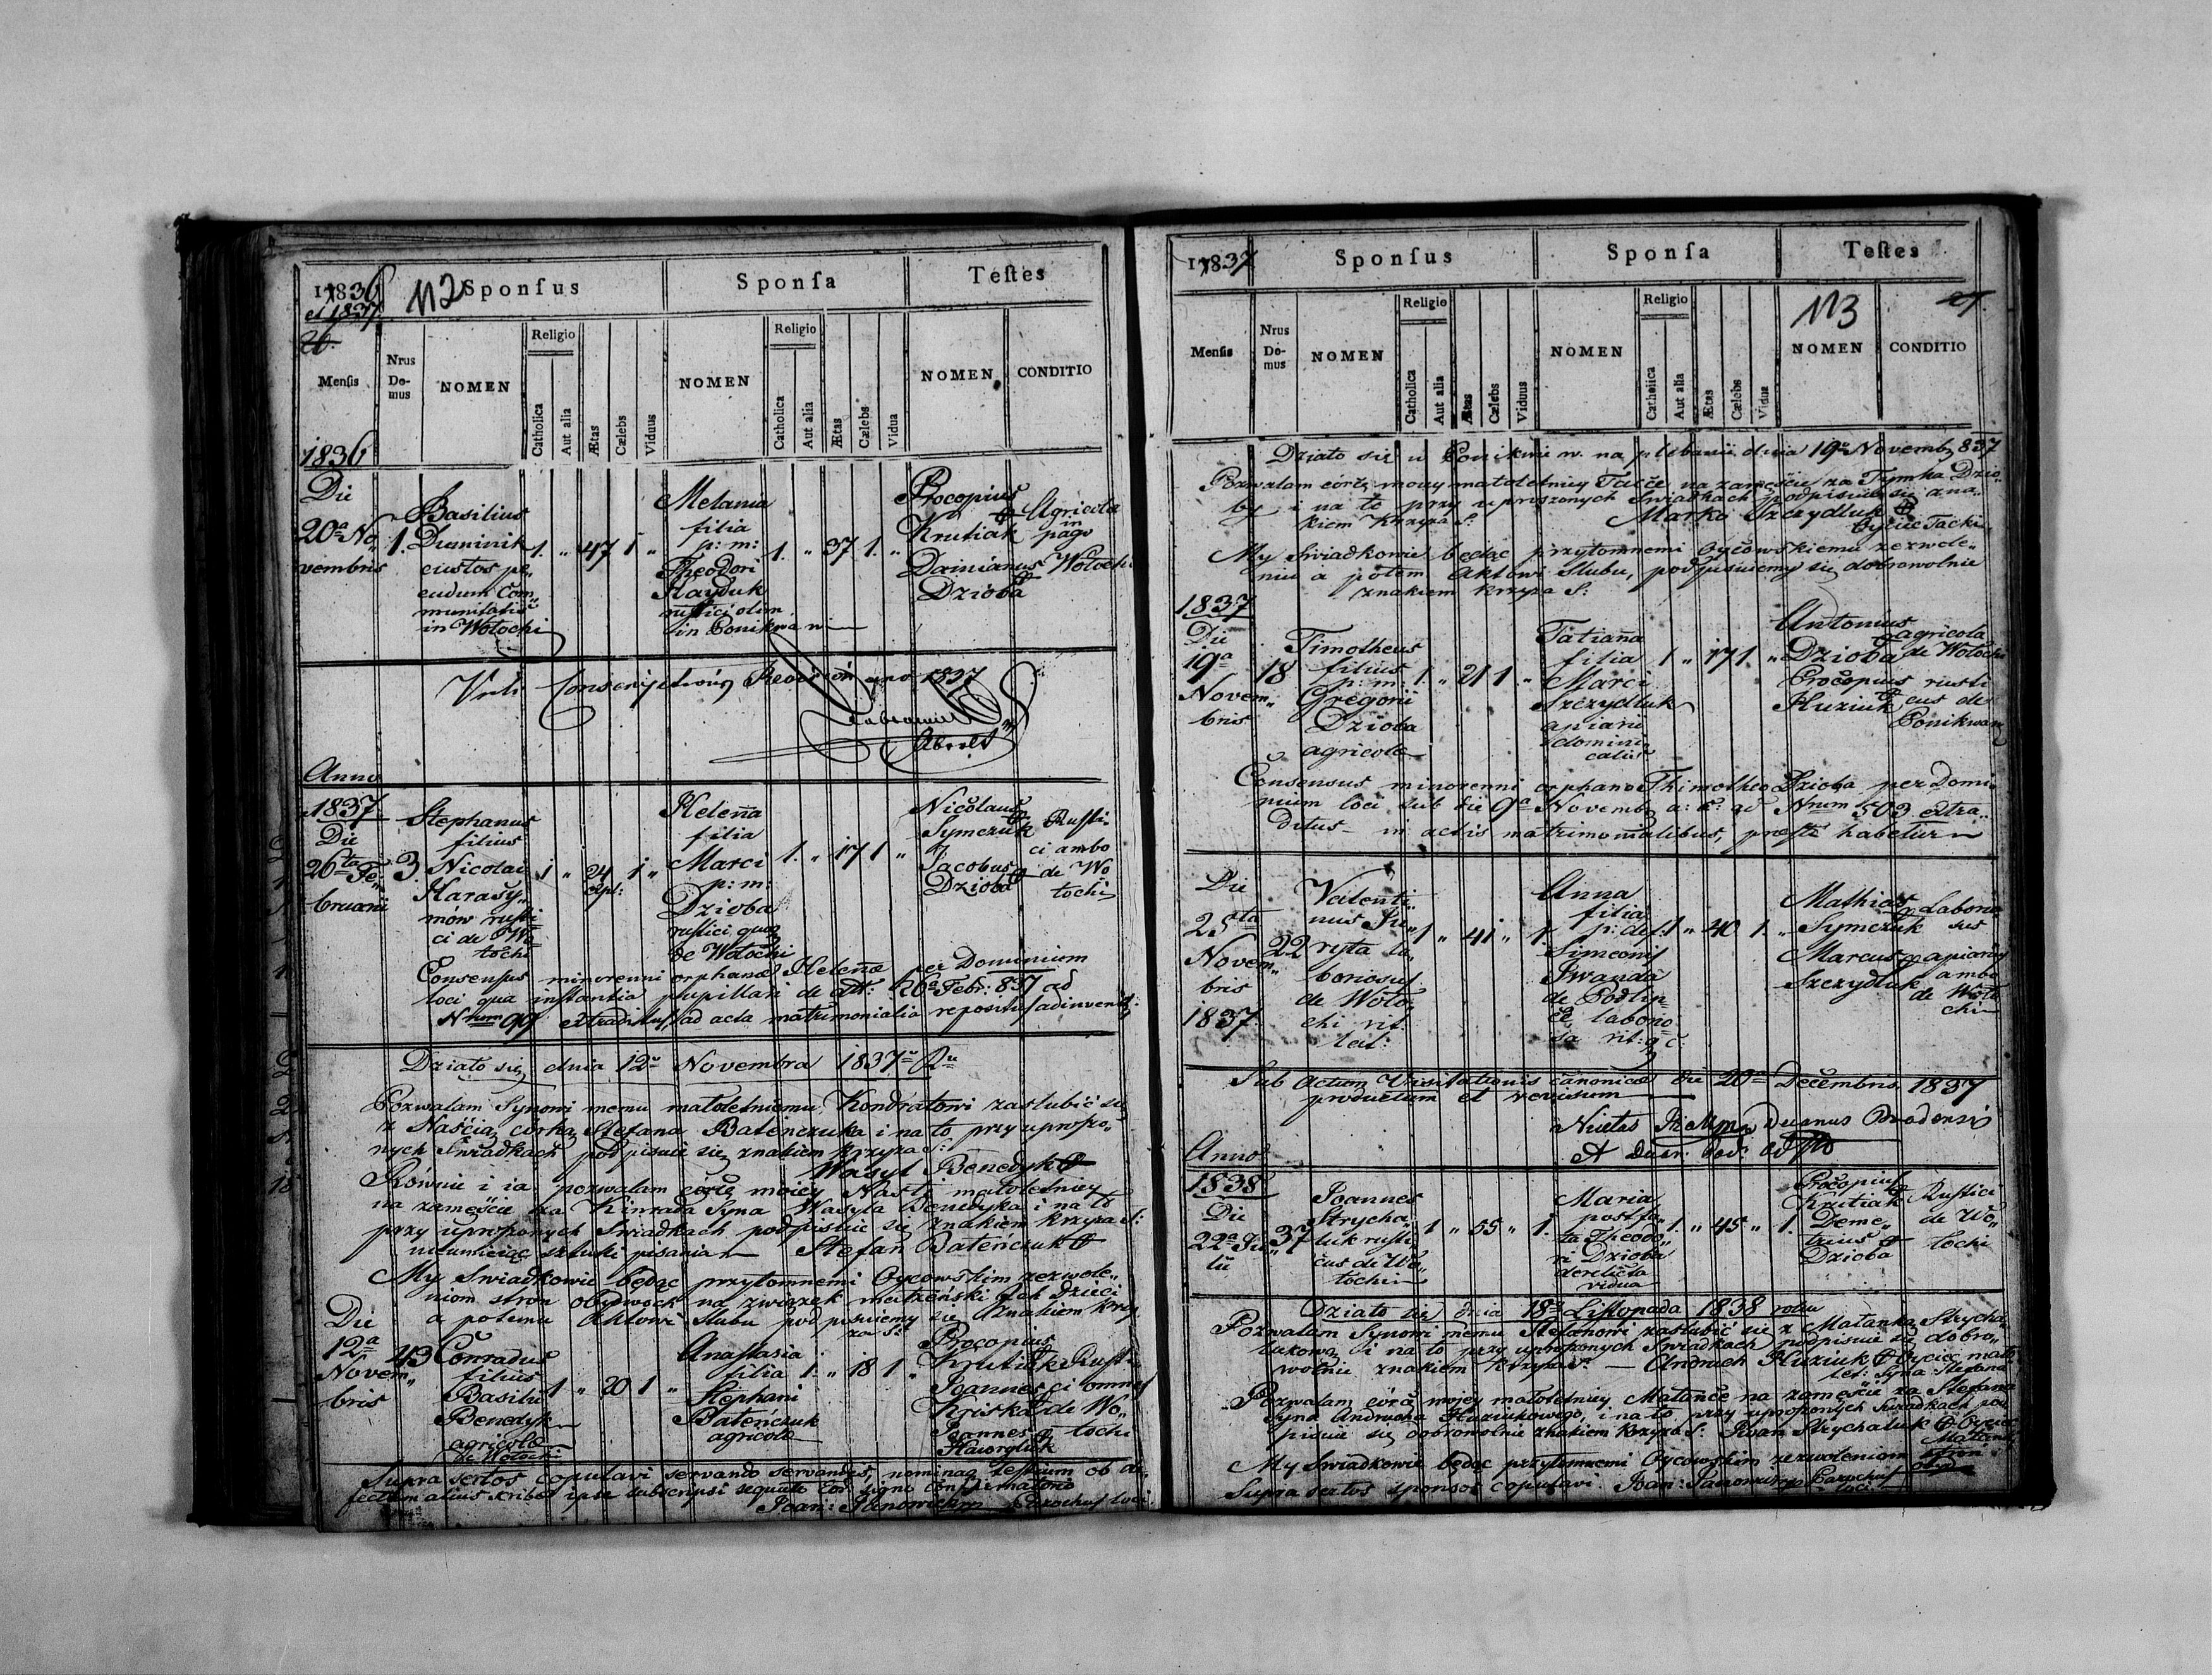 1836
et 1837
112
Sponsus
Sponsa
Testes
26.
Mensis
Nrus Domus
NOMEN
Religio
Catholica
Aut alia
Ætas
Cælebs
Viduus
NOMEN
Religio
Catholica
Aut alia
Ætas
Cælebs
Vidua
NOMEN
CONDITIO
1836
Die
20a No„
vembris
1.
Basilius
Duminik
custos pe„
cudum Com„
munitatis
in Wołochi
1. „ 47 1 „
Melania
filia
p: m:
Theodori
Hayduk
rustici olim
in Ponikwa
1. „ 37 1. „
Procopius
Krutiak
Damianus
Dzioba
Agricola
in
pago
Wołochi
Conscriptionis Revision pro 1837
Anno
1837
Die
26ta Fe„
bruarii
3
Stephanus
filius
Nicolai
Harasy„
mów rusti
ci de Wo„
łochi
1 „ 24 1 „
Helena
filia
Marci
p: m:
Dzioba
rustici
de Wołochi
1. „ 17 1 „
Nicolaus
Symczuk
Jacobus
Dzioba
Rusti„
ci ambo
de Wo
łochi
Consensus minorenni orphanæ Helenæ per Dominium
loci qua instantia pupillari de 26a Febr: 837 ad
Nrum 99 extraditus ad acta matrimonialia repositus
Działo się dnia 12o Novembra 1837o Ru
Pozwalam Synowi memu małoletniemu Kondratowi zaslubić się
z Naścią córką Stefana Bateńczuka i na to przy uproszo„
nych Swiadkach podpisuie się znakiem krzyża S:
Wasyl Benedyk
Równie i ia pozwalam córce moiey Nasti małoletniey
na zameście za Kinrada Syna Wasyla Benedyka i na to
przy uproszonych Swiadkach podpisuie się znakiem krzyża S:
nieumieiąc sztuki pisania Stefan Bateńczuk
My Swiadkowie będąc przytomnemi Oycowskim zezwole„
niom stron obydwoch na związek matzeński ich Dzieci
a potemu Aktowi Slubu podpisuiemy się znakiem krzy
za S:
Die
12a
Novem„
bris
43
Conradus
filius
Basilii
Benedyk
agricolæ
de Wołochi
1 „ 20 1 „
Anastasia
filia
Stephani
Bateńczuk
agricolæ
1. „ 18 1 „
Procopius
Krutiak
Joannes
Kriska
Joannes
Hawryluk
Rusti
ci omnes
de Wo„
łochi
Supra sertos copulavi servando servandis, nomina testium ob de„
fectum alius scribæ ipse subscripsi
Joan: Janowicz Parochus loci
1837
Sponsus
Sponsa
Testes
113
27.
Mensis
Nrus Domus
NOMEN
Religio
Catholica
Aut alia
Ætas
Cælebs
Viduus
NOMEN
Religio
Catholica
Aut alia
Ætas
Cælebs
Vidua
NOMEN
CONDITIO
Działo się w Ponikwie w. na plebanii dnia 19o Novemb: 837
Pozwalam córce mowy małoletniey Tačce na zameście za Tymka Dzio„
by i na to przy uproszonych Swiadkach podpisuie się zna„
kiem Krzyża S: Marko Szczydluk
Oyciec Tacki
My Swiadkowie będąc przytomnemi Oycowskiemu zezwole„
niu a potem Aktowi Slubu, podpisuiemy się dobrowolnie
znakiem krzyza S:
1837
Die
19a
Novem„
bris
18
Timotheus
filius
p: m:
Gregorii
Dzioba
agricolæ
1. „ 21 1. „
Tatianna
filia
Marci
Szczydluk
apiarii
domini„
calis
1 „ 17 1. „
Antonius
Dzioba
Procopius
Huziuk
agricola
de Wołochi
rusti
cus de
Ponikwa
Consensus minorenni orphano Thimotheo Dzioba per Domi„
nium loci sub die 9a Novemb a: c: ad Nrum 503 extra„
ditus in actis matrimonialibus, præsto habetur
Die
25ta
Novem„
bris
1837
22
Valenti„
nus
ryta la„
boriosus
de Woło„
chi rit:
lat:
1 „ 41 „ 1.
Anna
filia
p: def:
Simeonis
Iwanda
de Podlip„
ce laborio„
sa rit: g: c:
1 „ 40 1. „
Mathias
Symczuk
Marcus
Szczydluk
Laborio
sus
apiarius
ambo
de Woło
chi
Sub Actum Visitationis canonicæ die 20a Decembris 1837
productum et revisum
Decanus Brodensis
Anno
1838
Die
22a Ju„
lii
37
Joannes
Strycha„
luk rusti
cus de Wo„
łochi
1 „ 55 „ 1.
Maria
post fa„
ta Theodo„
ri Dzioba
derelicta
vidua
1. „ 45 „ 1.
Procopius
Krutiak
Deme„
trius
Dzioba
Rustici
de Wo„
łochi
Działo się dnia 18o Listopada 1838 roku
Pozwalam Synowi memu Stefanowi zaslubić się z Małanką Strycha„
lukową i na to przy uproszonych Swiadkach podpisuie się dobro„
wolnie znakiem krzyża S: — Andruch Huziuk Oyciec mało
let: Syna Stefana
Pozwalam córce mojey małoletniey Małance na zameście za Stefana
Syna Andrucha Huziukowego, i na to przy uproszonych Swiadkach pod
pisuie się dobrowolnie znakiem krzyża S: Iwan Strychaluk Oyciec
Małanki
My Swiadkowie będąc przytomnemi Oycowskim zezwoleniom stron
Supra sertos sponsos copulavi. Joan: Janowicz Parochus
loci